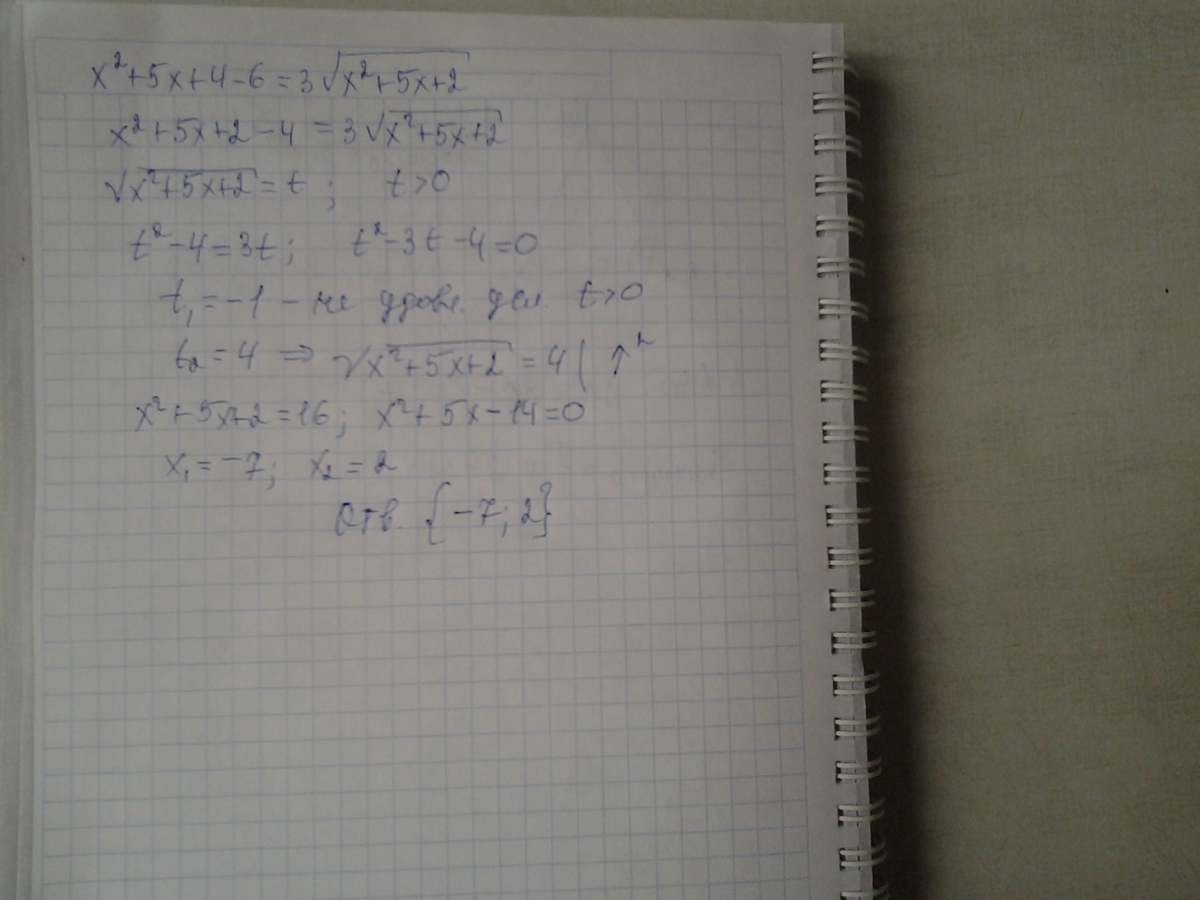 x²+5x+4-6=3√x²+5x+2
x²+5x+2-4=3√x²+5x+2
√x²+5x+2=t; t>0
t²-4=3t; t²-3t-4=0
t₁=-1 - не удовл. усл. t>0
t₂=4 ⇒ √x²+5x+2=4( ↑²
x²+5x+2=16; x²+5x-14=0
x₁=-7; x₂=2
Отв. {-7; 2}